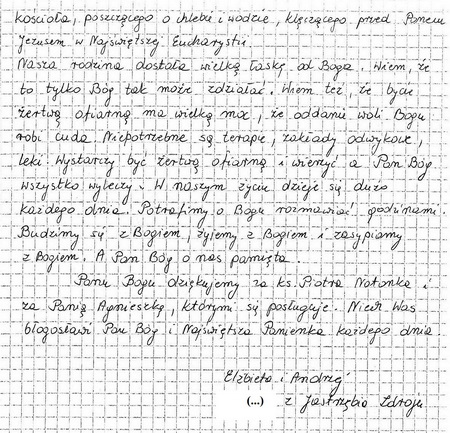 kościoła, poszczącego o chlebie i wodzie, klęczącego przed Panem
Jezusem w Najświętszej Eucharystii.
Nasza rodzina dostała wielką łaskę od Boga. Wiem, że
to tylko Bóg tak może zdziałać. Wiem też, że bycie
żertwą ofiarną ma wielką moc, że oddanie woli Bogu
robi cuda. Niepotrzebne są terapie, zakłady odwykowe,
leki. Wystarczy być żertwą ofiarną i wierzyć a Pan Bóg
wszystko wyleczy. W naszym życiu dzieje się dużo
każdego dnia. Potrafimy o Bogu rozmawiać godzinami.
Budzimy się z Bogiem, żyjemy z Bogiem i zasypiamy
z Bogiem. A Pan Bóg o nas pamięta.
Panu Bogu dziękujemy za ks. Piotra Natanka i
za Panią Agnieszkę, którymi się posługuje. Niech Was
błogosławi Pan Bóg i Najświętsza Panienka każdego dnia
Elżbieta i Andrzej
(...) z Jastrzębia Zdroju